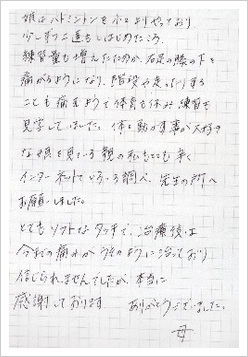 娘はバドミントンを小3よりやっており
少しずつ上達もしはじめたころ、
練習量も増えたためか、右足の膝の下を
痛がるようになり、階段や走ったりする
ことも痛まようで体育も休み練習も
見学していました。体を動かす事が大好き
な娘を見ている親の私もとても辛く
インターネットでいろいろ調べ、先生の所へ
お願いしました。
とてもソフトなタッチで、治療後は
今までの痛みがうそのように治っており
信じられませんでしたが、本当に
感謝しております ありがとうございました。
母